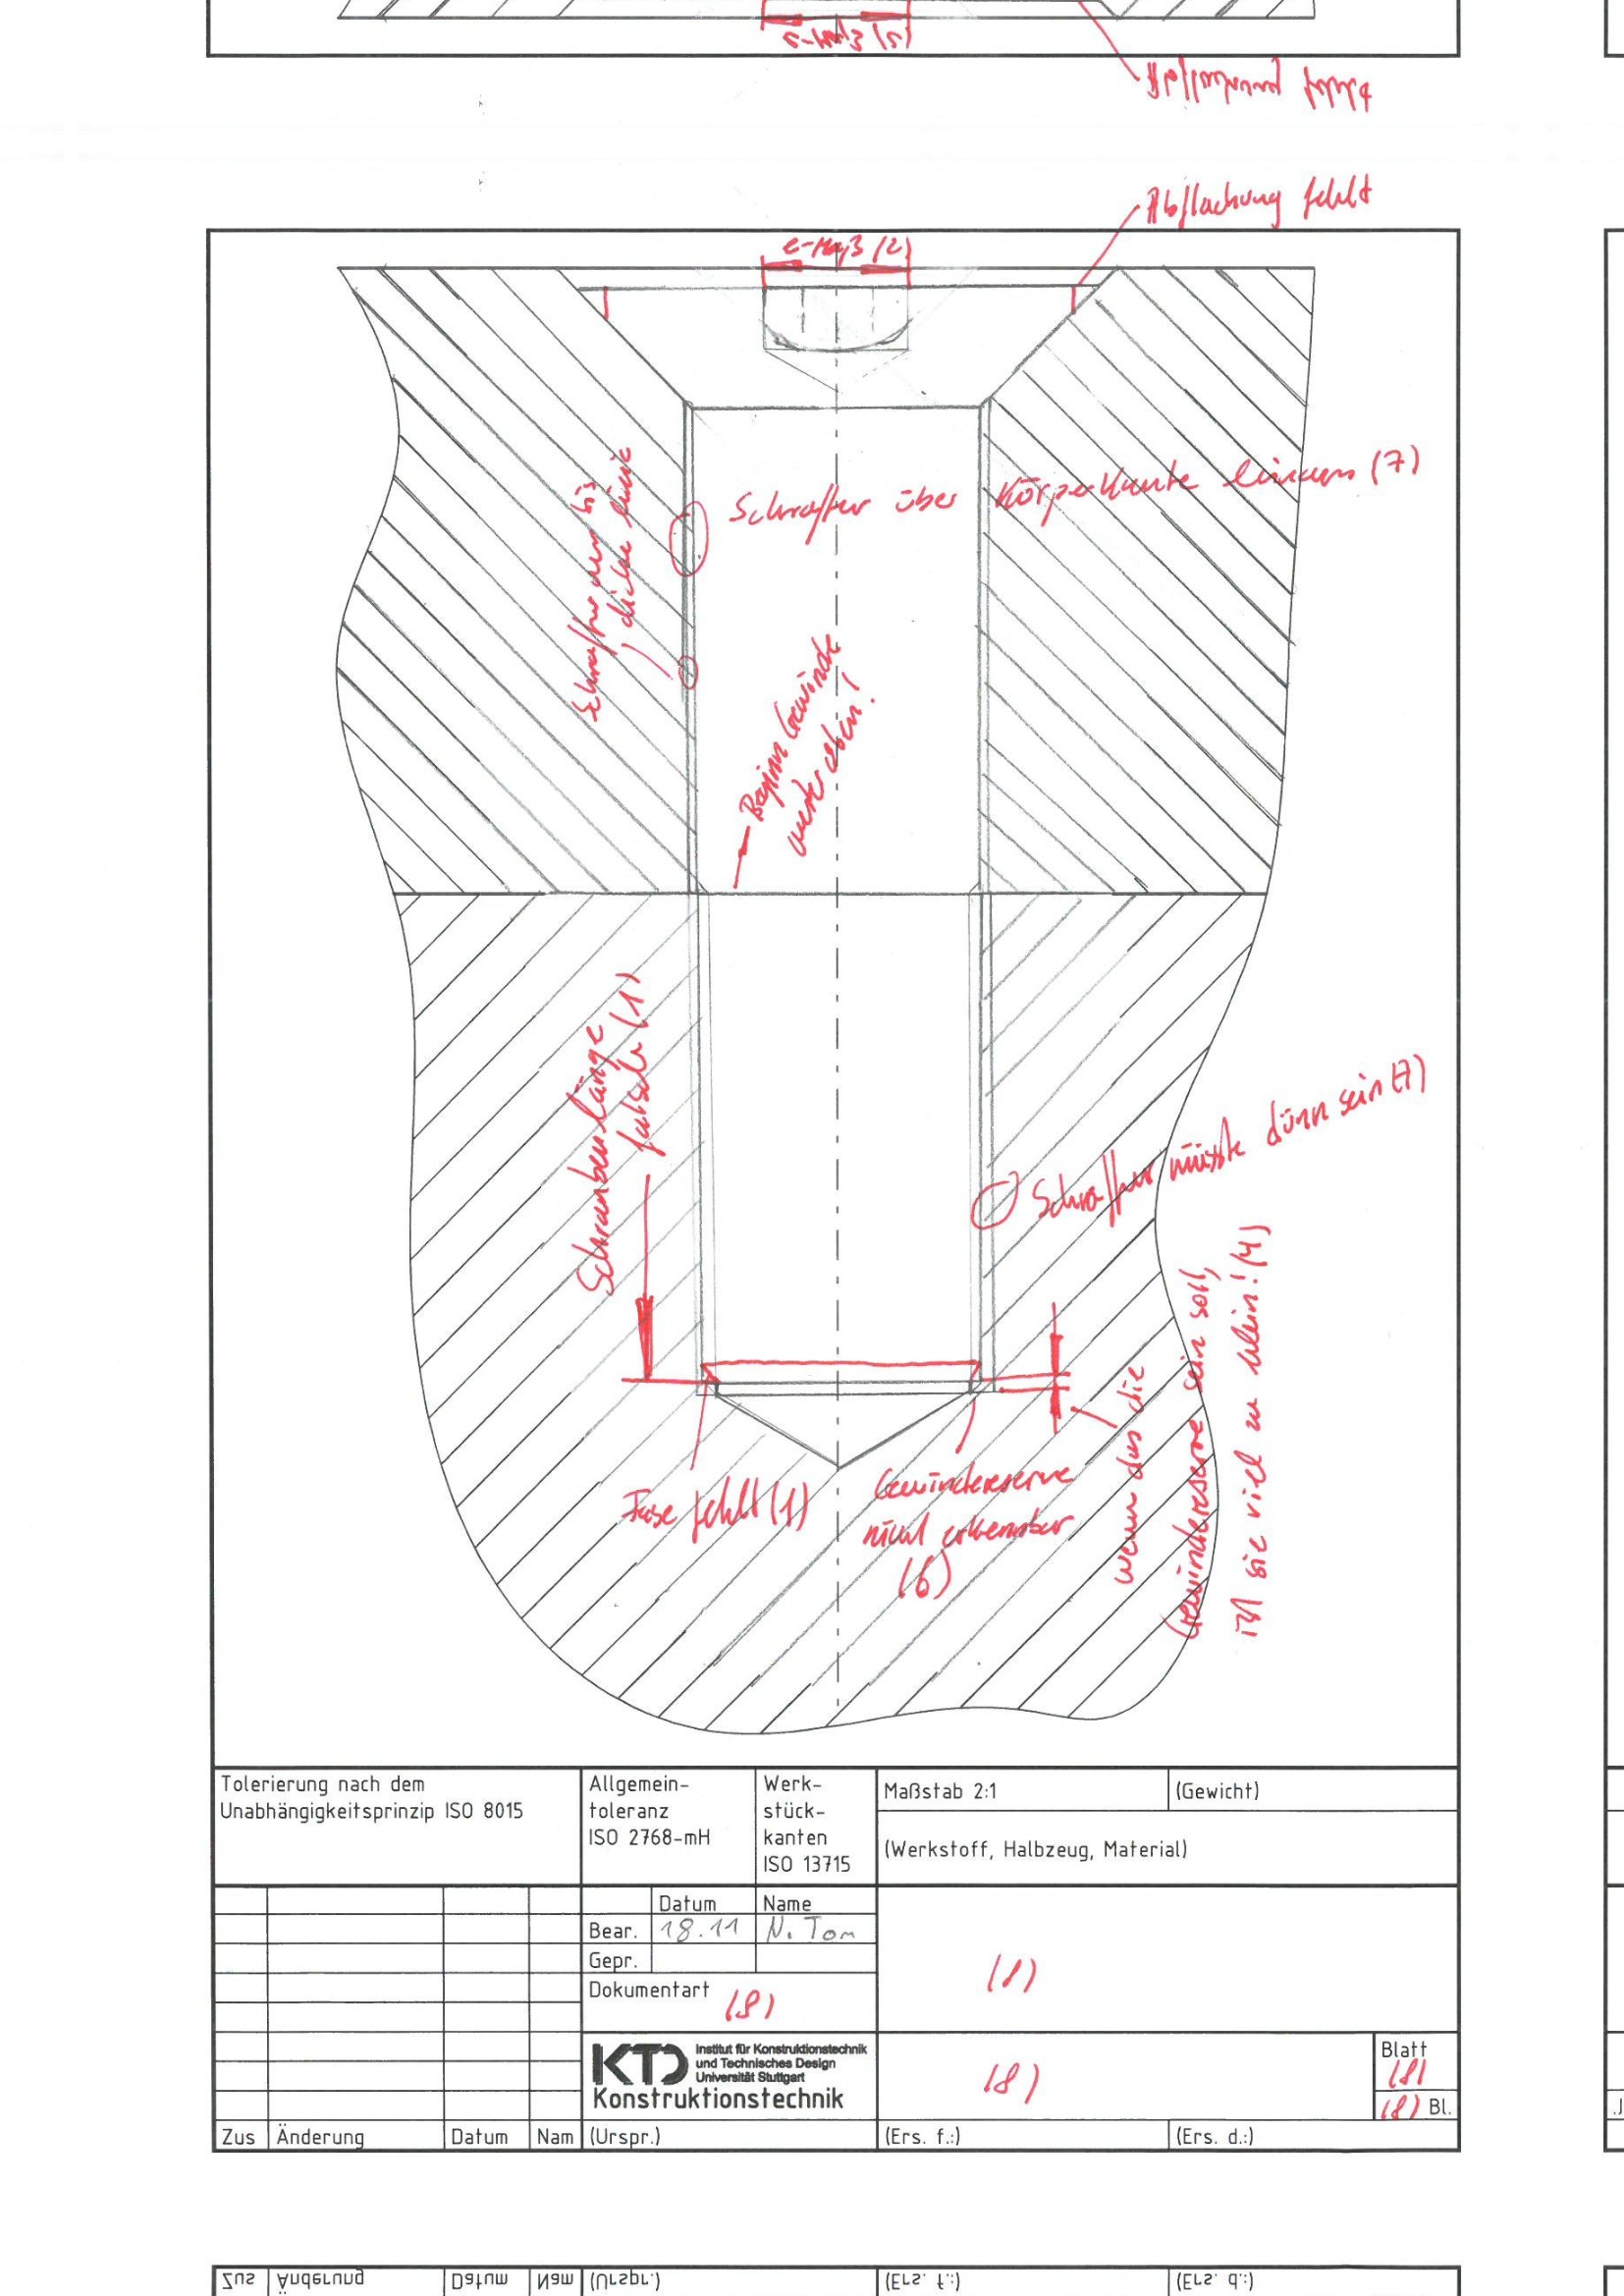 Abflachung fehlt
e-Maß (2)
Schraffur über Körperkante hinaus (7)
Schraffur nur bis
dicke Linie
Beginn Gewinde
weiter oben!
Schraubenlänge
falsch (1)
Schraffur müsste dünn sein (7)
Fase fehlt (1)
Gewindereserve
nicht erkennbar
(6)
wenn das die
Gewindereserve sein soll,
ist sie viel zu klein! (4)
Tolerierung nach dem
Unabhängigkeitsprinzip ISO 8015
Allgemein-
toleranz
ISO 2768-mH
Werk-
stück-
kanten
ISO 13715
Maßstab 2:1
(Gewicht)
(Werkstoff, Halbzeug, Material)
Datum Name
Bear. 18.11 N. Tom
Gepr.
Dokumentart
(8)
(8)
KTD Institut für Konstruktionstechnik
und Technisches Design
Universität Stuttgart
Konstruktionstechnik
(8)
Blatt
(8)
(8) Bl.
Zus Änderung Datum Nam (Urspr.) (Ers. f.:) (Ers. d.:)